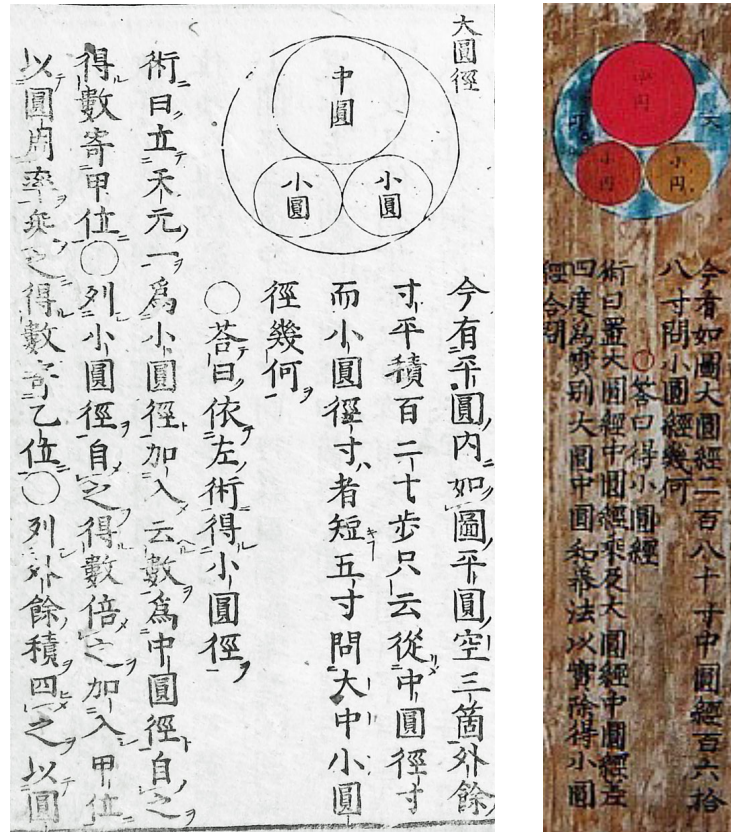 大圓徑
中圓
小圓
小圓
今有平圓内如圖平圓空三箇外餘
寸平積百二十歩只云從中圓徑寸
而小圓徑寸者短五寸問大中小圓
徑幾何
○荅曰依左術得小圓徑
術曰立天元一爲小圓徑加入云數爲中圓徑自之
得數寄甲位○列小圓徑自之得數倍之加入甲位
以圓周率乘之得數寄乙位○列外餘積四之以圓
中円
大
小円
小円
今有如圖大圓經二百八十寸中圓經百六拾
八寸問小圓經幾何
○答曰得小圓經
術曰置大圓經中圓經乘及大圓經中圓經差
四度爲實別大圓中圓和冪法以實除得小圓
經合問